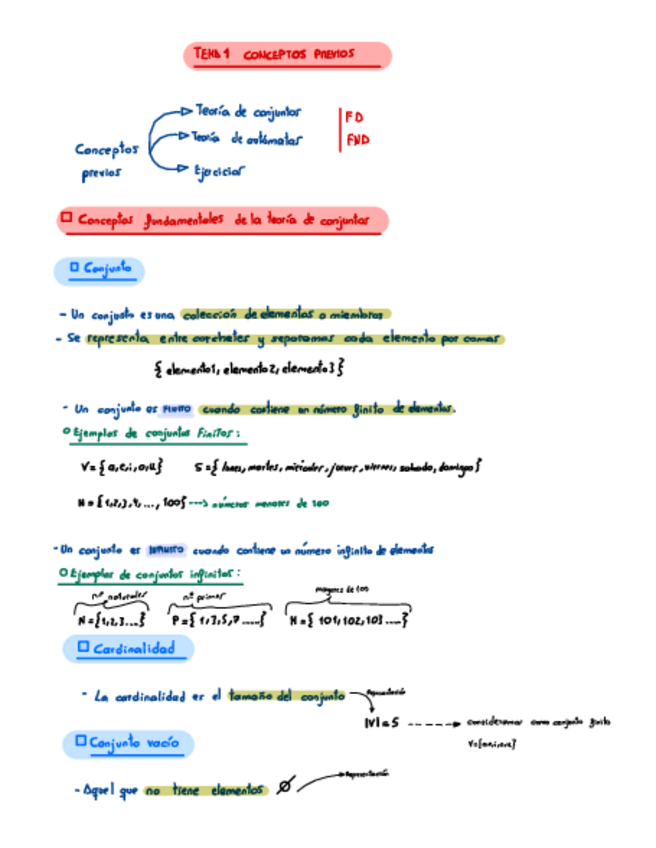 TEMA 1 CONCEPTOS PREVIOS
Teoría de conjuntos
FD
Teoría de autómatas
FND
Conceptos
previos
Ejercicios
Conceptos fundamentales de la teoría de conjuntos
Conjunto
- Un conjunto es una colección de elementos o miembros
- Se representa entre corchetes y separamos cada elemento por comas
{ elemento1, elemento2, elemento3 }
- Un conjunto es FINITO cuando contiene un número finito de elementos.
Ejemplos de conjuntos FINITOS:
V = { a,e,i,o,u } S = { lunes, martes, miércoles, jueves, viernes, sabado, domingo }
N = { 1,2,3,4, ..., 100 } ---> números menores de 100
- Un conjunto es INFINITO cuando contiene un número infinito de elementos
Ejemplos de conjuntos infinitos:
nº naturales nº primos mayores de 100
N = {1,2,3....} P = { 1,3,5,7 ......} N = { 101, 102, 103 .....}
Cardinalidad
- La cardinalidad es el tamaño del conjunto
Representación
|V| = 5 ----> consideramos como conjunto finito
V={a,e,i,o,u}
Conjunto vacío
- Aquel que no tiene elementos Ø
Representación